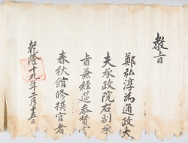 敎旨
鄭弘淳爲通政大
夫承政院右副承
旨兼經筵參贊官
春秋館修撰官者
乾隆十九年二月十五日